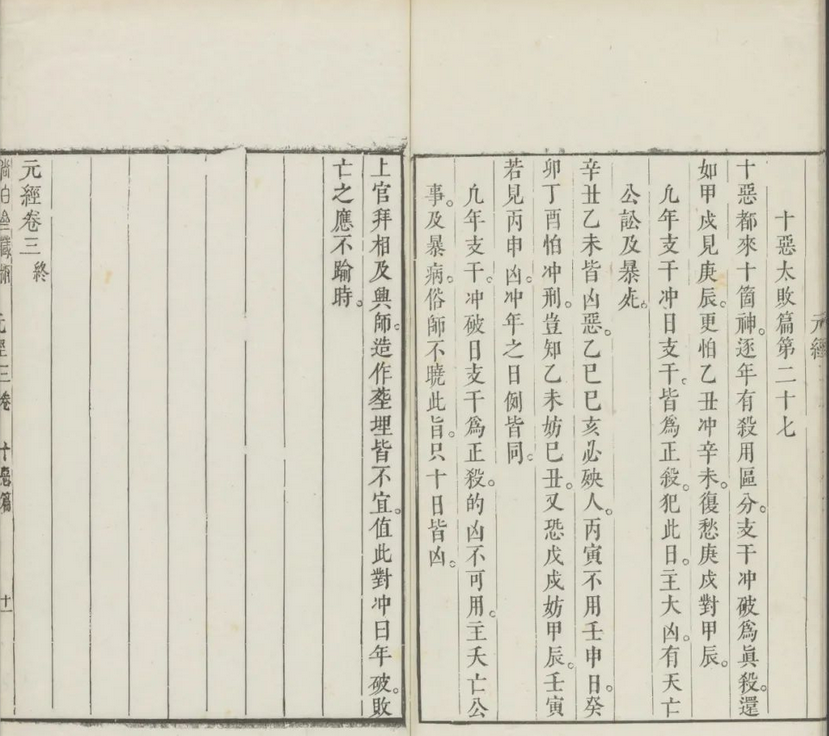 元經
十惡太敗篇第二十七
十惡都來十箇神。逐年有殺用區分。支干冲破爲眞殺。還
如甲戌見庚辰。更怕乙丑冲辛未。復愁庚戌對甲辰。
凢年支干冲日支干。皆爲正殺。犯此日。主大凶。有天亡
公訟及暴㐫。
辛丑乙未皆凶惡。乙巳巳亥必殃人。丙寅不用壬申日。癸
卯丁酉怕冲刑。豈知乙未妨巳丑。又恐戊戌妨甲辰。壬寅
若見丙申凶。冲年之日例皆同。
凢年支干。冲破日支干爲正殺。的凶不可用。主夭亡公
事。及暴病。俗師不曉此旨。只十日皆凶。
上官拜相及興師。造作塟埋皆不宜。值此對冲日年破。敗
亡之應不踰時。
元經卷三終
元經三卷 十惡篇 十一